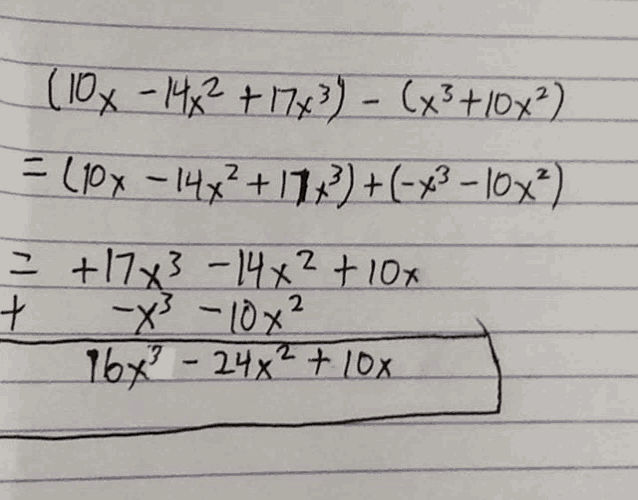 (10x - 14x² + 17x³) - (x³ + 10x²)
= (10x - 14x² + 17x³) + (-x³ - 10x²)
= +17x³ - 14x² + 10x
+ -x³ - 10x²
16x³ - 24x² + 10x